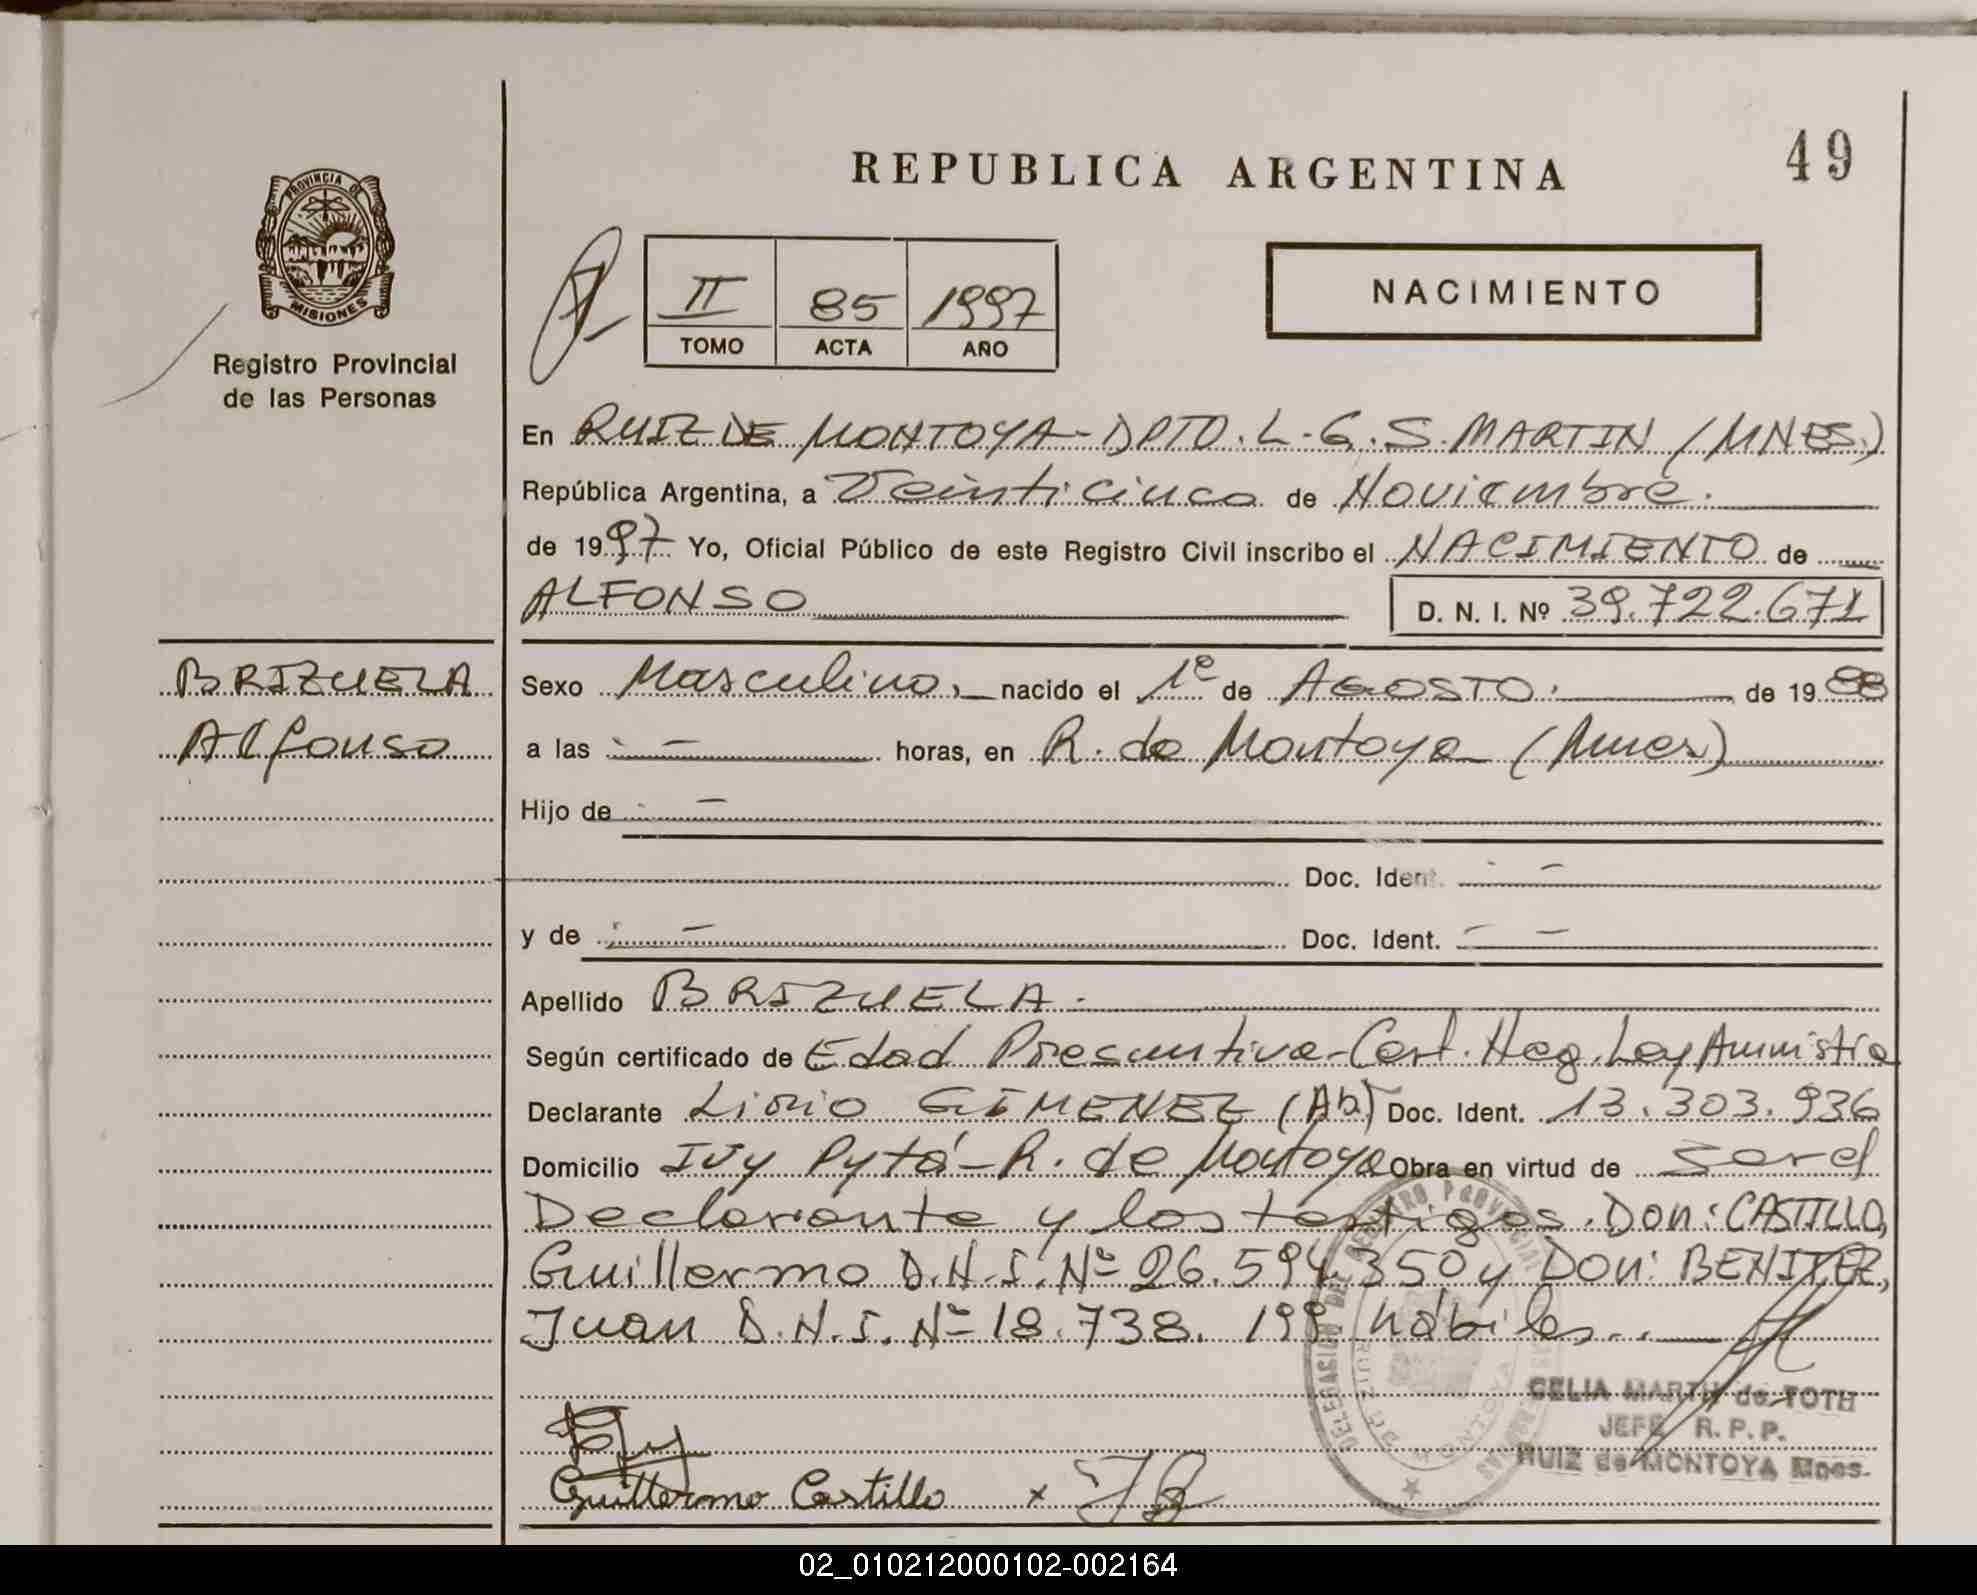 REPUBLICA ARGENTINA
49
PROVINCIA DE
MISIONES
Registro Provincial
de las Personas
II 85 1997
TOMO ACTA AÑO
NACIMIENTO
En RUIZ DE MONTOYA - DPTO. L. G. S. MARTIN (MNES.)
República Argentina, a Veinticinco de Noviembre.
de 1997 Yo, Oficial Público de este Registro Civil inscribo el NACIMIENTO de
ALFONSO D. N. I. Nº 39.722.671
BRIZUELA
Alfonso
Sexo Masculino. nacido el 1º de AGOSTO. de 1988
a las - horas, en R. de Montoya (Mnes)
Hijo de -
Doc. Ident. -
y de - Doc. Ident. -
Apellido BRIZUELA.
Según certificado de Edad Presuntiva - Cert. Neg. Ley Amnistia
Declarante Lirio GIMENEZ (Ab) Doc. Ident. 13.303.936
Domicilio Ivy Pytá - R. de Montoya Obra en virtud de ser el
Declarante y los testigos. Don: CASTILLO,
Guillermo D.N.I. Nº 26.594.350 y Don: BENITEZ,
Juan D.N.I. Nº 18.738.199 hábiles..
DELEGACION DEL REGISTRO PROVINCIAL DE LAS PERSONAS
RUIZ DE MONTOYA
CELIA MARTH de TOTH
JEFE R. P. P.
RUIZ de MONTOYA Mnes.
Guillermo Castillo x JB
02_010212000102-002164